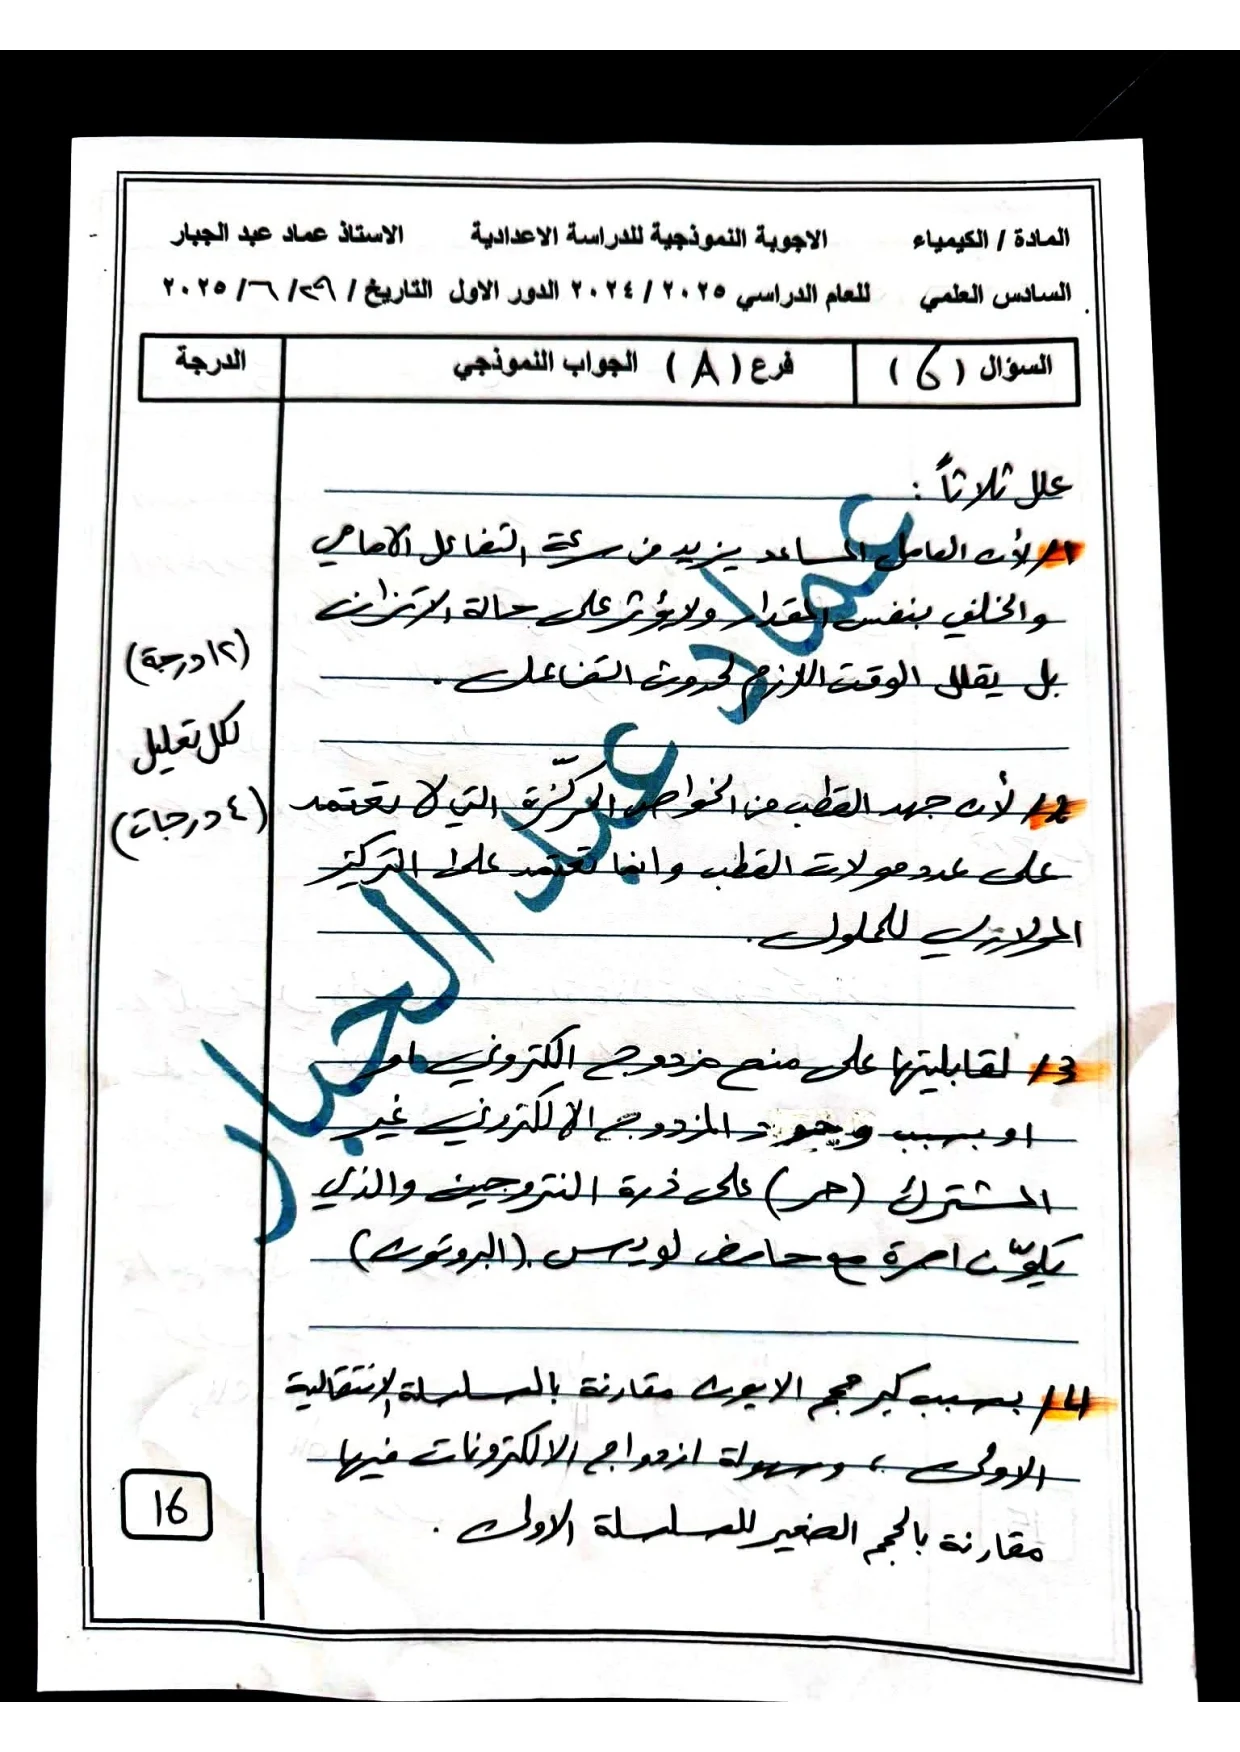 المادة / الكيمياء الاجوبة النموذجية للدراسة الاعدادية الاستاذ عماد عبد الجبار
السادس العلمي للعام الدراسي ٢٠٢٥ / ٢٠٢٤ الدور الاول التاريخ / ٢٩ / ٦ / ٢٠٢٥
السؤال ( 6 ) فرع ( A ) الجواب النموذجي الدرجة
علل ثلاثاً :
1/ لأن العامل المساعد يزيد من سرعة التفاعل الامامي
والخلفي بنفس المقدار ولا يؤثر على حالة الاتزان
بل يقلل الوقت اللازم لحدوث التفاعل .
(١٢ درجة)
لكل تعليل
(٤ درجات)
2/ لأن جهد القطب من الخواص المركّزة التي لا تعتمد
على عدد مولات القطب وانما تعتمد على التركيز
المولاري للمحلول.
3/ لقابليتها على منح مزدوج الكتروني او
او بسبب وجود المزدوج الالكتروني غير
المشترك (حر) على ذرة النتروجين والذي
يكوّن اصرة مع حامض لويس (البروتون)
4/ بسبب كبر حجم الايون مقارنة بالسلسلة الانتقالية
الاولى ، وسهولة ازدواج الالكترونات فيها
مقارنة بالحجم الصغير للسلسلة الاولى .
16
عماد عبد الجبار